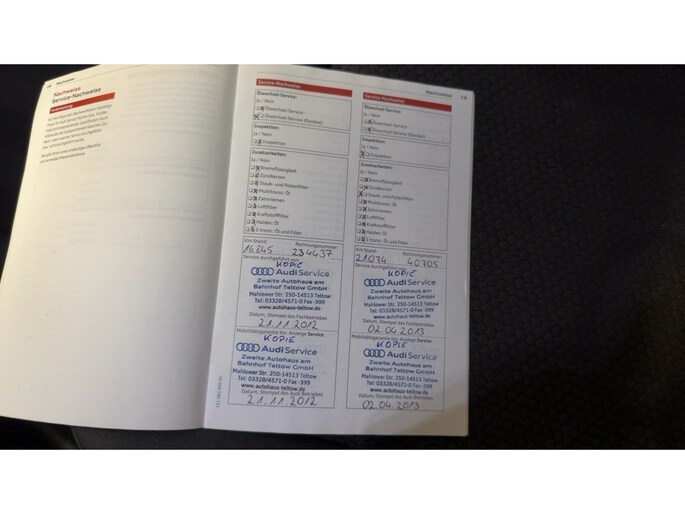 Nachweise
Nachweise
Service-Nachweise
Service-Nachweise
Ölwechsel-Service:
Ja / Nein
Ölwechsel-Service
Ölwechsel-Service (flexibel)
Inspektion:
Ja / Nein
Inspektion
Zusatzarbeiten:
Ja / Nein
Bremsflüssigkeit
Zündkerzen
Staub- und Pollenfilter
Multitronic: Öl
Zahnriemen
Luftfilter
Kraftstofffilter
Haldex: Öl
S tronic: Öl und Filter
Km-Stand: Rechnungsnummer:
16845 234437
Service durchgeführt von:
KOPIE
Audi Service
Zweite Autohaus am
Bahnhof Teltow GmbH
Mahlower Str. 250-14513 Teltow
Tel: 03328/4571-0 Fax -399
www.autohaus-teltow.de
Datum, Stempel des Fachbetriebes
21.11.2012
Mobilitätsgarantie bis: Anzeige Service
KOPIE
Audi Service
Zweite Autohaus am
Bahnhof Teltow GmbH
Mahlower Str. 250-14513 Teltow
Tel: 03328/4571-0 Fax -399
www.autohaus-teltow.de
Datum, Stempel des Audi Betriebes
21.11.2012
Nachweise
Service-Nachweise
Ölwechsel-Service:
Ja / Nein
Ölwechsel-Service
Ölwechsel-Service (flexibel)
Inspektion:
Ja / Nein
Inspektion
Zusatzarbeiten:
Ja / Nein
Bremsflüssigkeit
Zündkerzen
Staub- und Pollenfilter
Multitronic: Öl
Zahnriemen
Luftfilter
Kraftstofffilter
Haldex: Öl
S tronic: Öl und Filter
Km-Stand: Rechnungsnummer:
21074 40705
Service durchgeführt von:
KOPIE
Audi Service
Zweite Autohaus am
Bahnhof Teltow GmbH
Mahlower Str. 250-14513 Teltow
Tel: 03328/4571-0 Fax -399
www.autohaus-teltow.de
Datum, Stempel des Fachbetriebes
02.04.2013
Mobilitätsgarantie bis: Anzeige Service
KOPIE
Audi Service
Zweite Autohaus am
Bahnhof Teltow GmbH
Mahlower Str. 250-14513 Teltow
Tel: 03328/4571-0 Fax -399
www.autohaus-teltow.de
Datum, Stempel des Audi Betriebes
02.04.2013